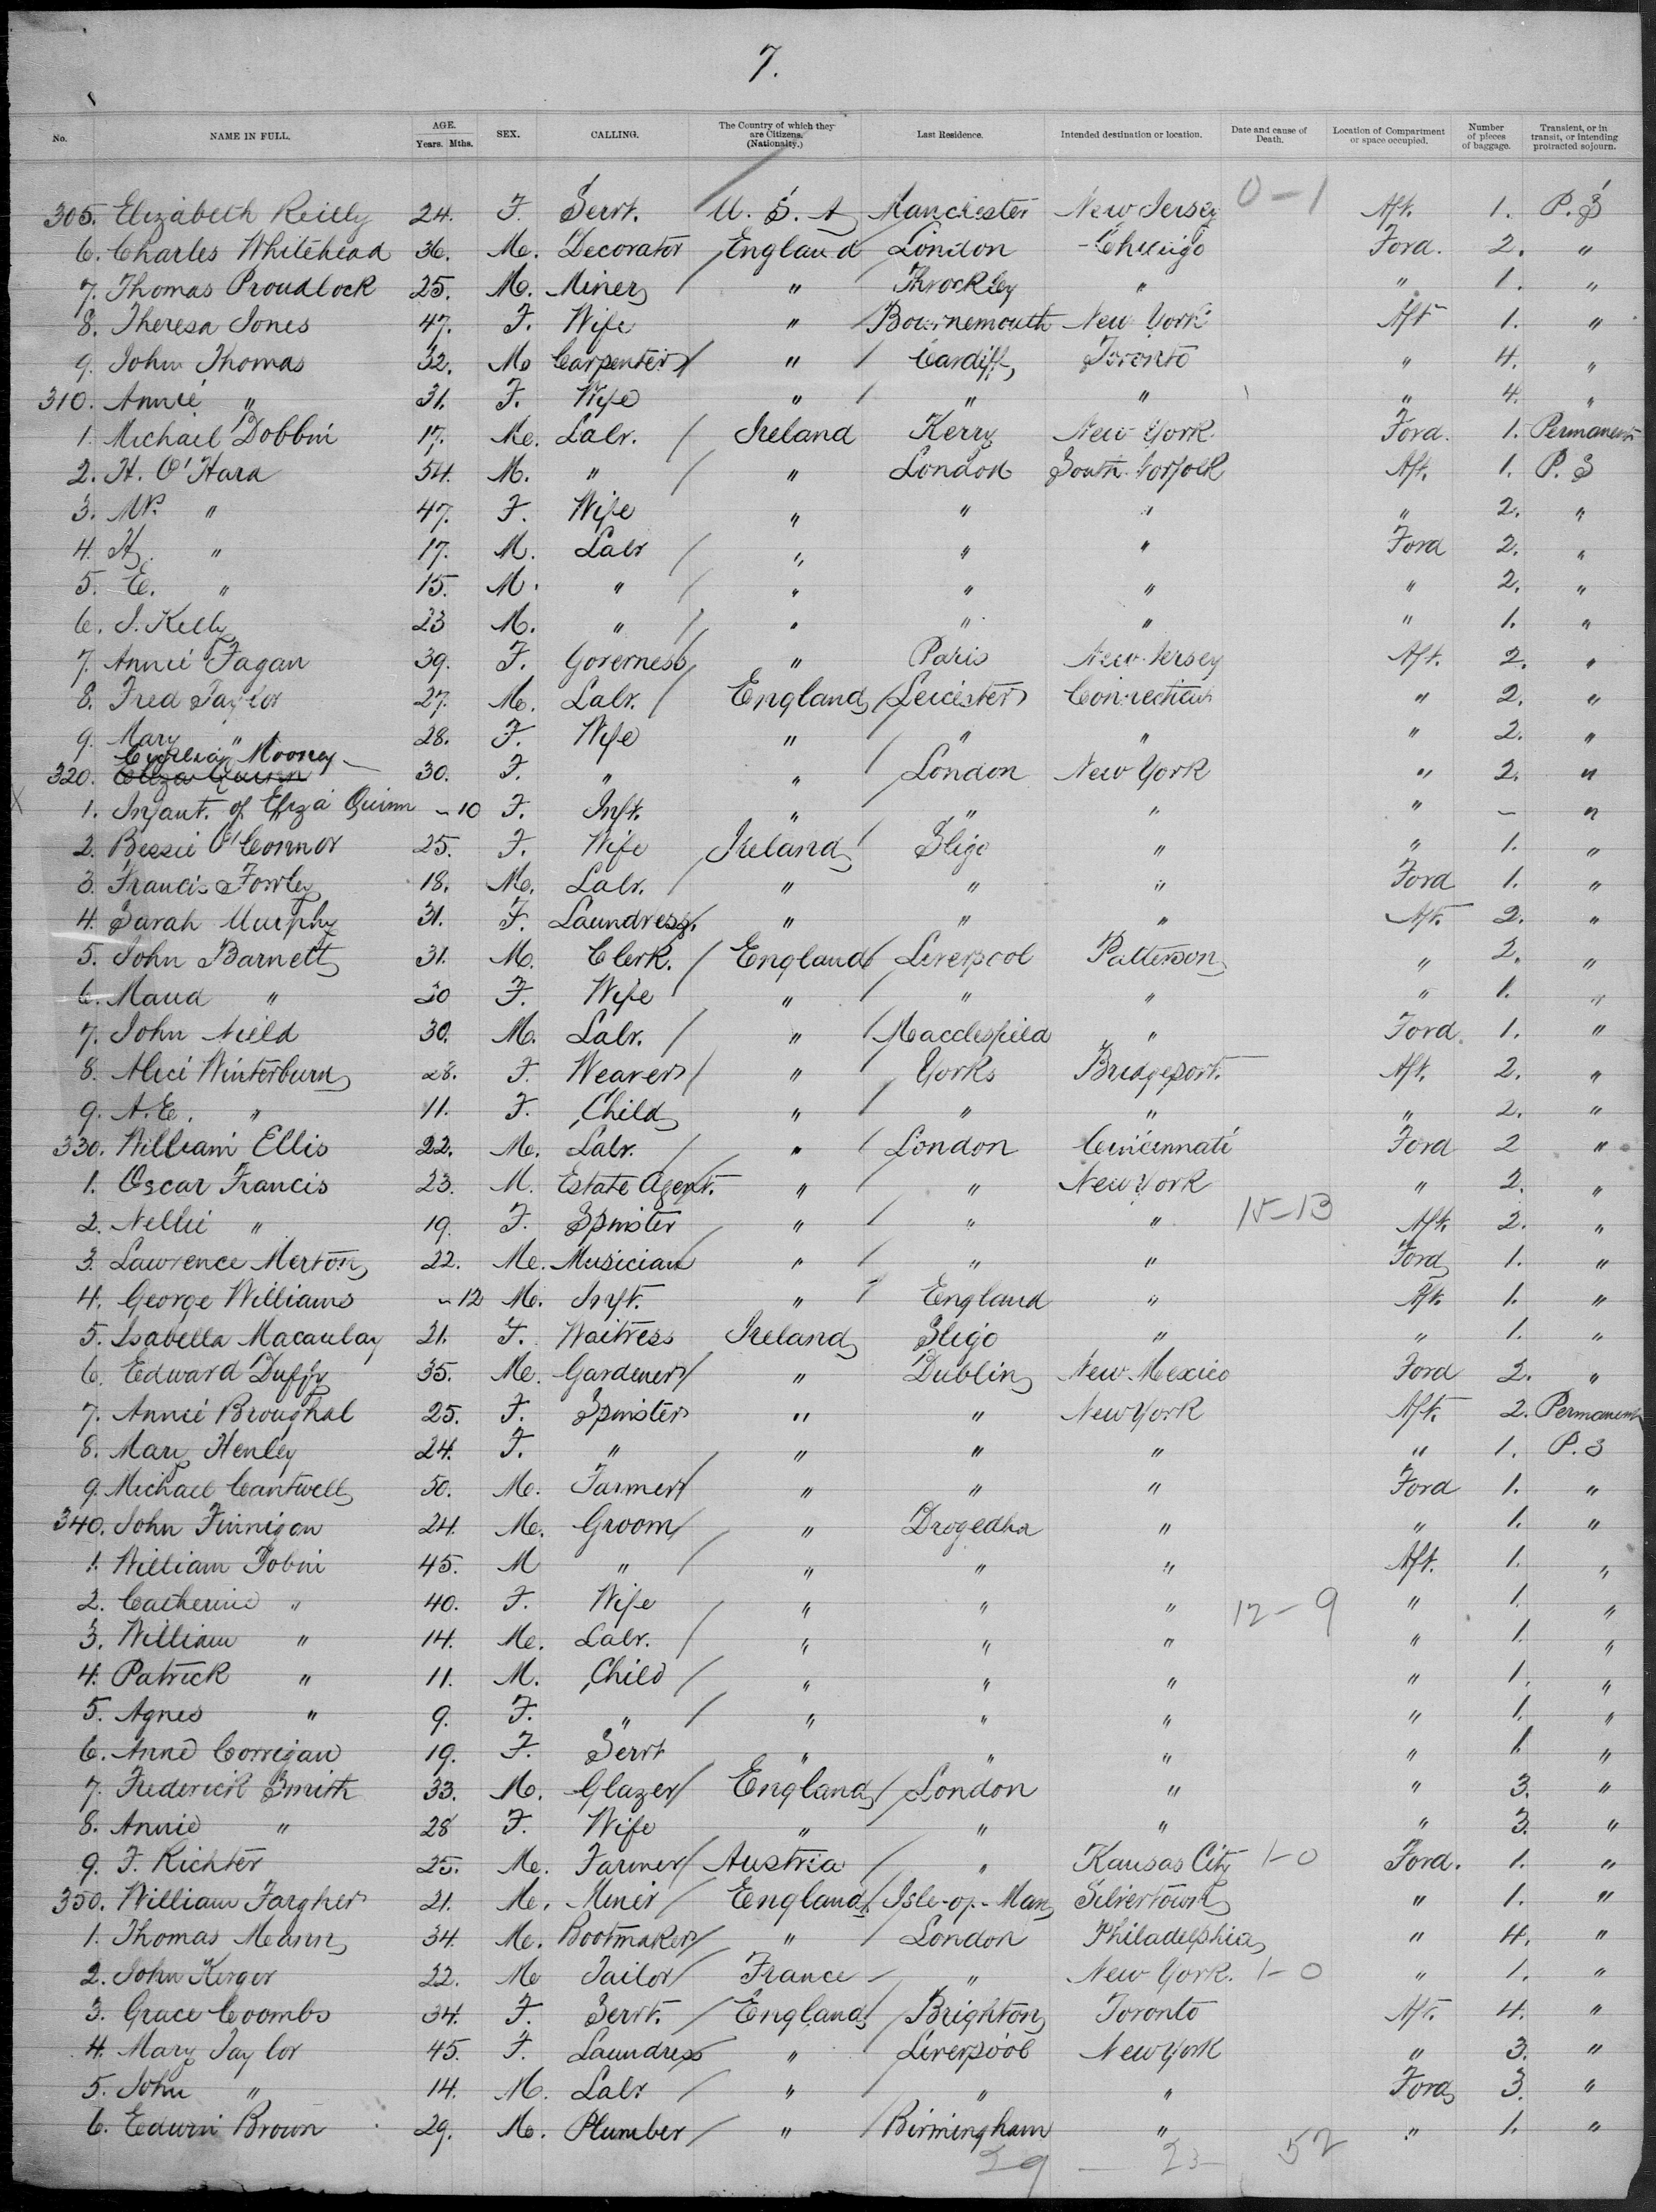 7.
No. NAME IN FULL. AGE. Years. Mths. SEX. CALLING. The Country of which they are Citizens. (Nationality.) Last Residence. Intended destination or location. Date and cause of Death. Location of Compartment or space occupied. Number of pieces of baggage. Transient, or in transit, or intending protracted sojourn.
305. Elizabeth Reilly 24. F. Servt. U. S. A Manchester New Jersey 0-1 Aft. 1. P. S
6. Charles Whitehead 36. M. Decorator England London Chicago Ford. 2. "
7. Thomas Proudlock 25. M. Miner " Throckley " " 1. "
8. Theresa Jones 47. F. Wife " Bournemouth New York Aft 1. "
9. John Thomas 32. M Carpenter " Cardiff Toronto " 4. "
310. Annie " 31. F. Wife " " " " 4. "
1. Michael Dobbin 17. M. Labr. Ireland Kerry New York. Ford. 1. Permanent
2. H. O'Hara 54. M. " " London South Norfolk Aft. 1. P. S
3. " 47. F. Wife " " " " 2. "
4. H. " 17. M. Labr " " " Ford 2. "
5. E. " 15. M. " " " " " 2. "
6. J. Kelly 23 M. " " " " " 1. "
7. Annie Fagan 39. F. Governess " Paris New Jersey Aft. 2. "
8. Fred Taylor 27. M. Labr. England Leicester Connecticut " 2. "
9. Mary " 28. F. Wife " " " " 2. "
Mooney
320. Eliza Quinn 30. F. " " London New York " 2. "
1. Infant. of Eliza Quinn - 10 F. Inft. " " " " - "
2. Bessie O'Connor 25. F. Wife Ireland Sligo " " 1. "
3. Francis Fowley 18. M. Labr. " " " Ford 1. "
4. Sarah Murphy 31. F. Laundress. " " " Aft. 2. "
5. John Barnett 31. M. Clerk. England Liverpool Patterson " 2. "
6. Maud " 30 F. Wife " " " " 1. "
7. John Nield 30. M. Labr. " Macclesfield " Ford. 1. "
8. Alice Winterburn 28. F. Weaver " Yorks Bridgeport. Aft. 2. "
9. A. E. " 11. F. Child " " " " 2. "
330. William Ellis 22. M. Labr. " London Cincinnati Ford 2 "
1. Oscar Francis 23. M. Estate Agent. " " New York " 2. "
2. Nellie " 19. F. Spinster " " " 15-13 Aft. 2. "
3. Lawrence Merton 22. M. Musician " " " Ford 1. "
4. George Williams - 12 M. Inft. " England " Aft. 1. "
5. Isabella Macaulay 21. F. Waitress Ireland Sligo " " 1. "
6. Edward Duffy 35. M. Gardener " Dublin New Mexico Ford 2. "
7. Annie Broughal 25. F. Spinster " " New York Aft. 2. Permanent
8. Mary Henley 24. F. " " " " " 1. P. S
9. Michael Cantwell 50. M. Farmer " " " Ford 1. "
340. John Finnigan 24. M. Groom " Drogedha " " 1. "
1. William Tobin 45. M " " " " Aft. 1. "
2. Catherine " 40. F. Wife " " " 12-9 " 1. "
3. William " 14. M. Labr. " " " " 1. "
4. Patrick " 11. M. Child " " " " 1. "
5. Agnes " 9. F. " " " " " 1. "
6. Anne Corrigan 19. F. Servt " " " " 1. "
7. Frederick Smith 33. M. Glazer England London " " 3. "
8. Annie " 28 F. Wife " " " " 3. "
9. F. Richter 25. M. Farmer Austria " Kansas City 1-0 Ford. 1. "
350. William Fargher 21. M. Miner England Isle-of-Man Silvertown " 1. "
1. Thomas Meann 34. M. Bootmaker " London Philadelphia " 4. "
2. John Kerger 22. M Tailor France " New York. 1-0 " 1. "
3. Grace Coombs 34. F. Servt. England Brighton Toronto Aft. 4. "
4. Mary Taylor 45. F. Laundress " Liverpool New York " 3. "
5. John " 14. M. Labr " " " Ford 3. "
6. Edwin Brown 29. M. Plumber " Birmingham " " 1. "
29 - 23 52